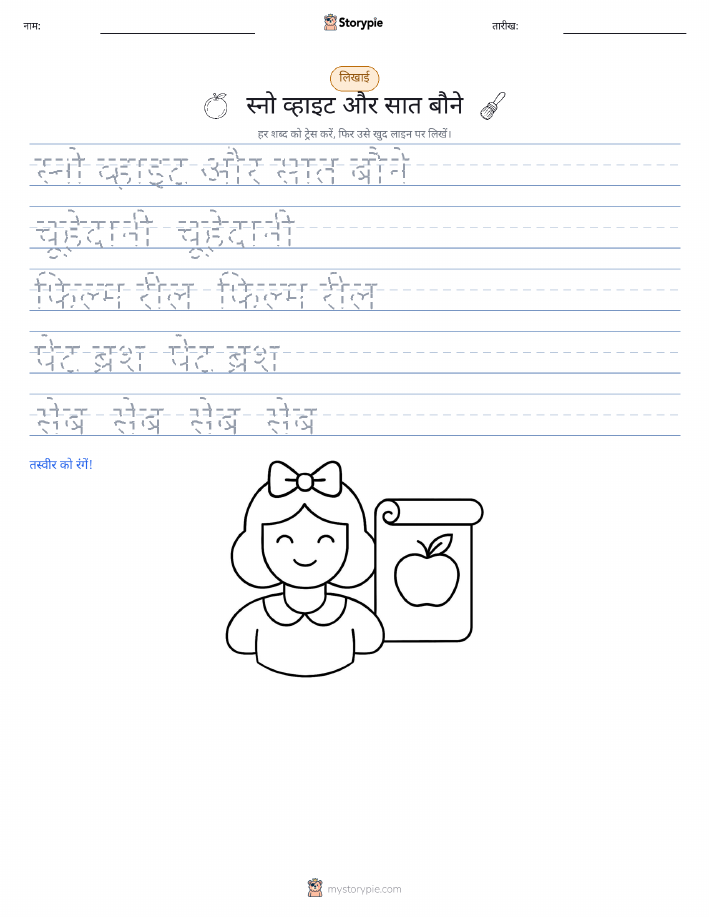 नाम:
Storypie
तारीख:
लिखाई
स्नो व्हाइट और सात बौने
हर शब्द को ट्रेस करें, फिर उसे खुद लाइन पर लिखें।
स्नो व्हाइट और सात बौने
चूहेदानी चूहेदानी
फिल्म रील फिल्म रील
पेंट ब्रश पेंट ब्रश
सेब सेब सेब सेब
तस्वीर को रंगें!
mystorypie.com